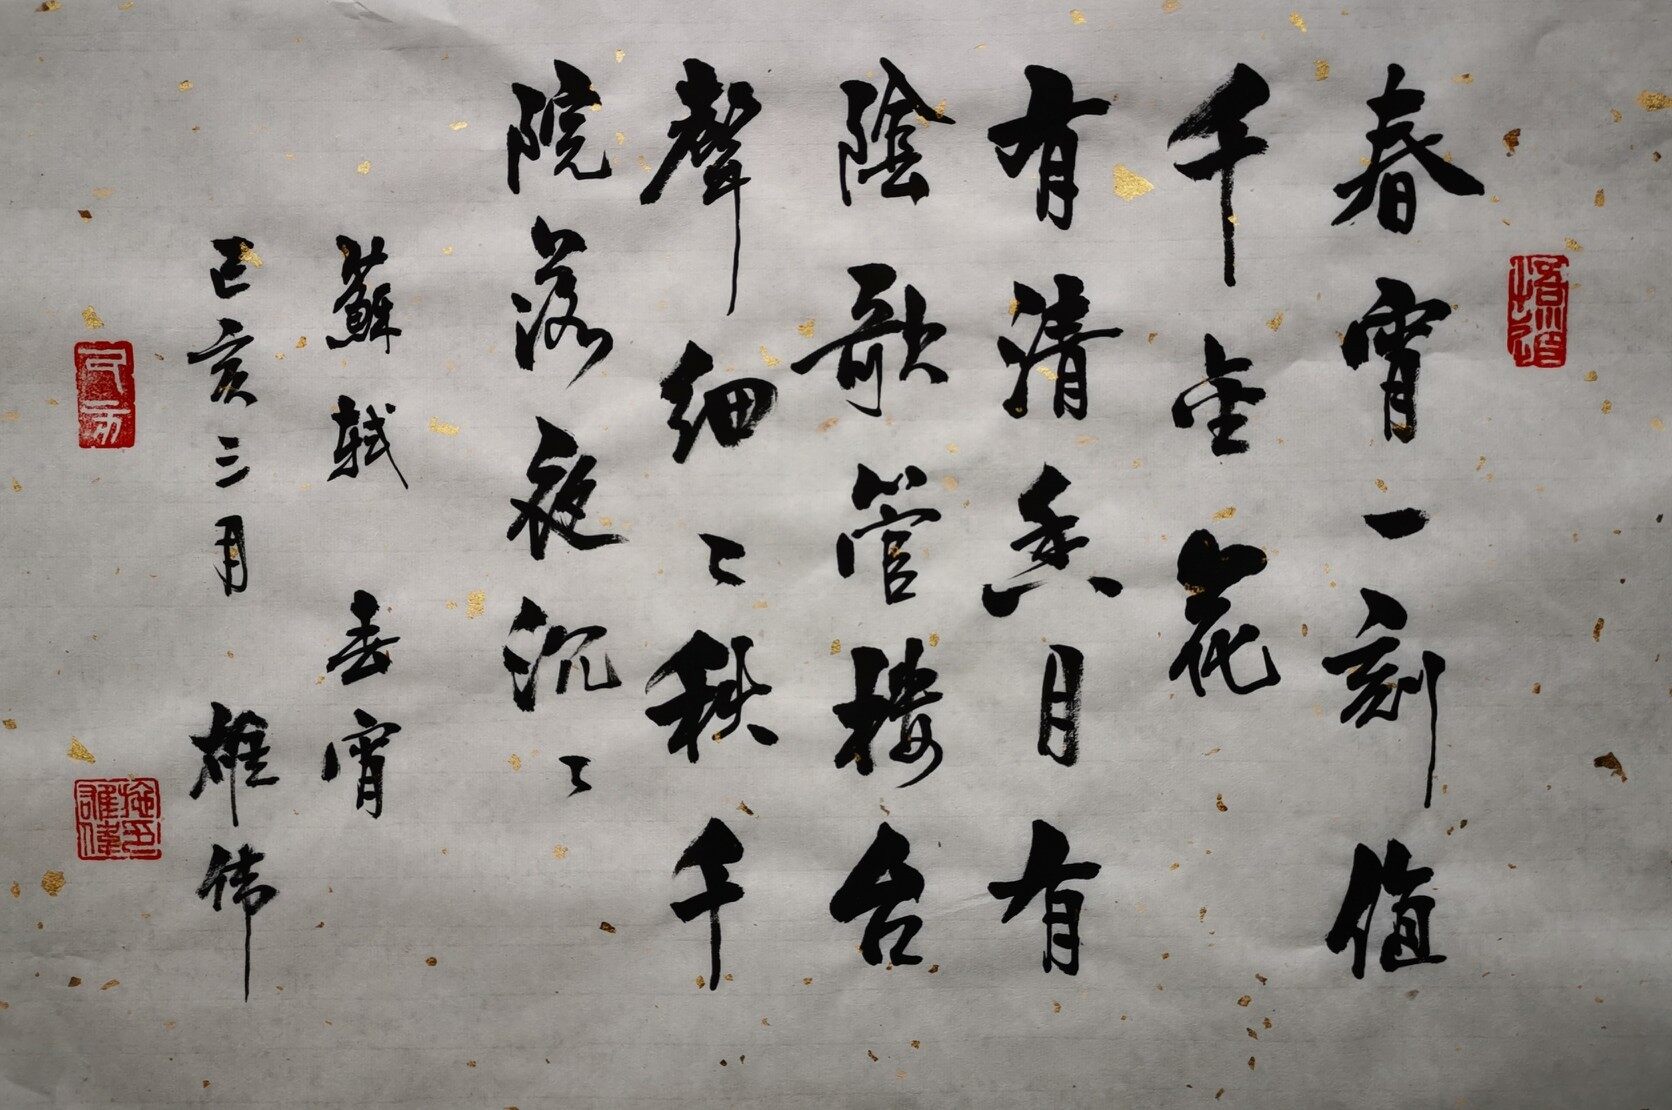 春宵一刻值
千金花
有清香月有
陰歌管楼台
聲細〻秋千
院落夜沉〻
蘇軾 春宵
己亥三月 雄伟